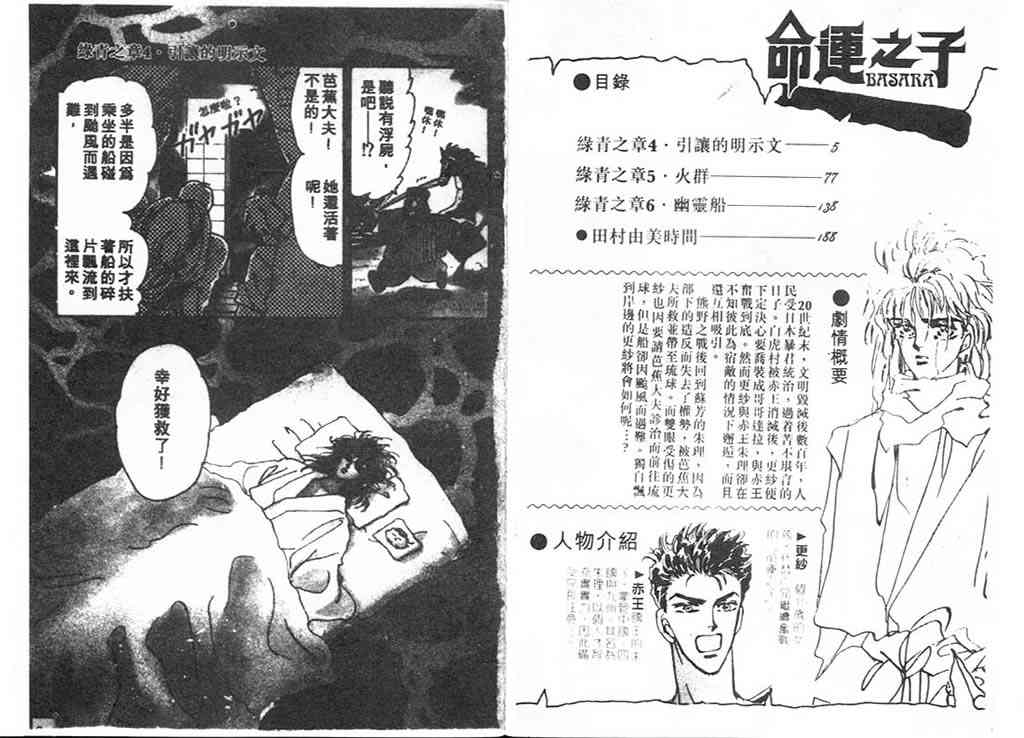 命運之子
BASARA
●目錄
綠青之章4．引讓的明示文 5
綠青之章5．火群 77
綠青之章6．幽靈船 138
●田村由美時間 188
●劇情概要
20世紀末，文明毀滅後數百年，人
民受日本暴君統治，過着苦不堪言的
日子。白虎村被赤王消滅後，更紗便
下定決心要喬裝成哥哥達拉，與赤王
奮戰到底。然而更紗與赤王朱理卻在
不知彼此為宿敵的情況下邂逅，而且
還互相吸引。
熊野之戰後回到蘇芳的朱理，因為
部下的造反而失去了權勢，被芭蕉大
夫所救並帶至琉球。而雙眼受傷的更
紗也因要請芭蕉大夫診治而前往琉
球，但是船卻因颱風而遇難。獨自飄
到岸邊的更紗將會如何呢…？
●人物介紹
▶更紗
▶赤王
綠青之章4．引讓的明示文
嘿休！
嘿休！
聽説有浮屍，
是吧——!?
芭蕉大夫！
不是的！
她還活著
呢！
怎麼啦？
ガヤガヤ
多半是因爲
乘坐的船碰
到颱風而遇
難，
所以才扶
著船的碎
片飄流到
這裡來。
幸好獲救了！